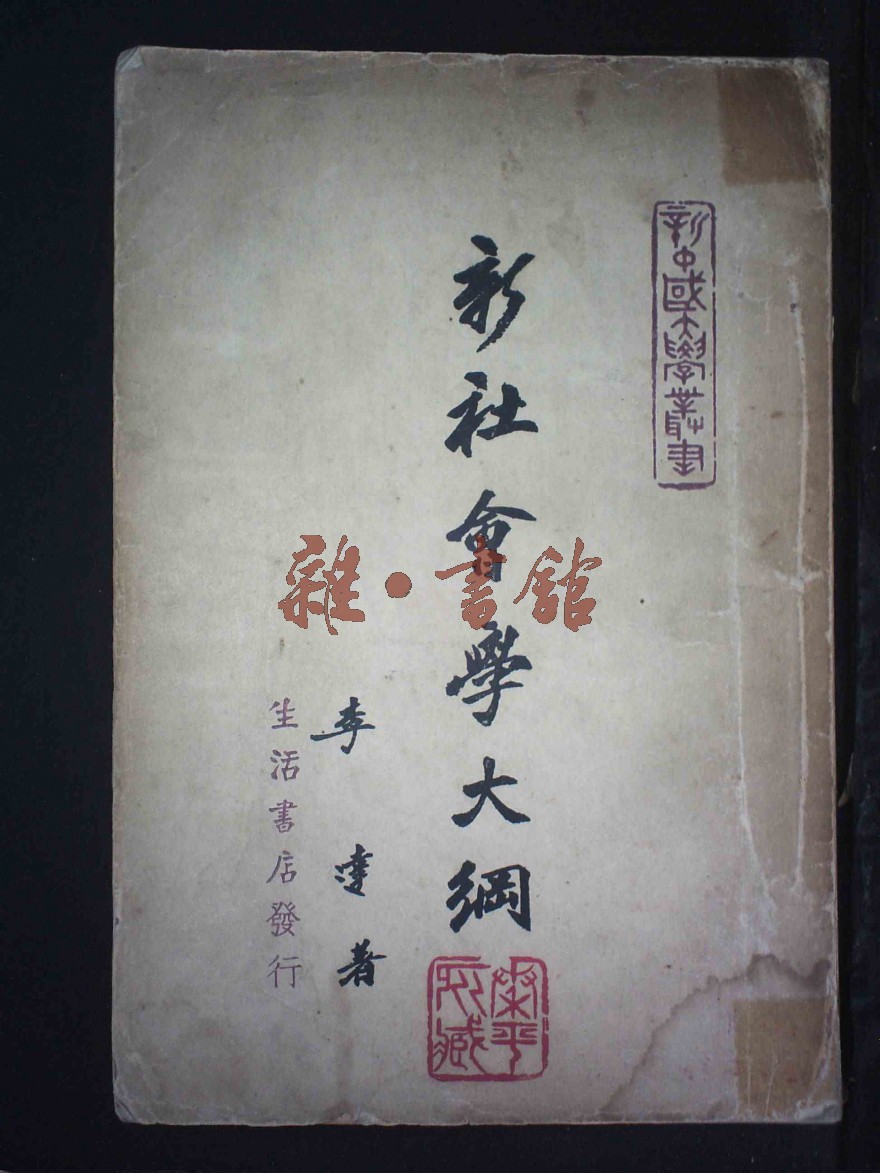 新中國大學叢書
新社會學大綱
李達著
生活書店發行
雜·書館